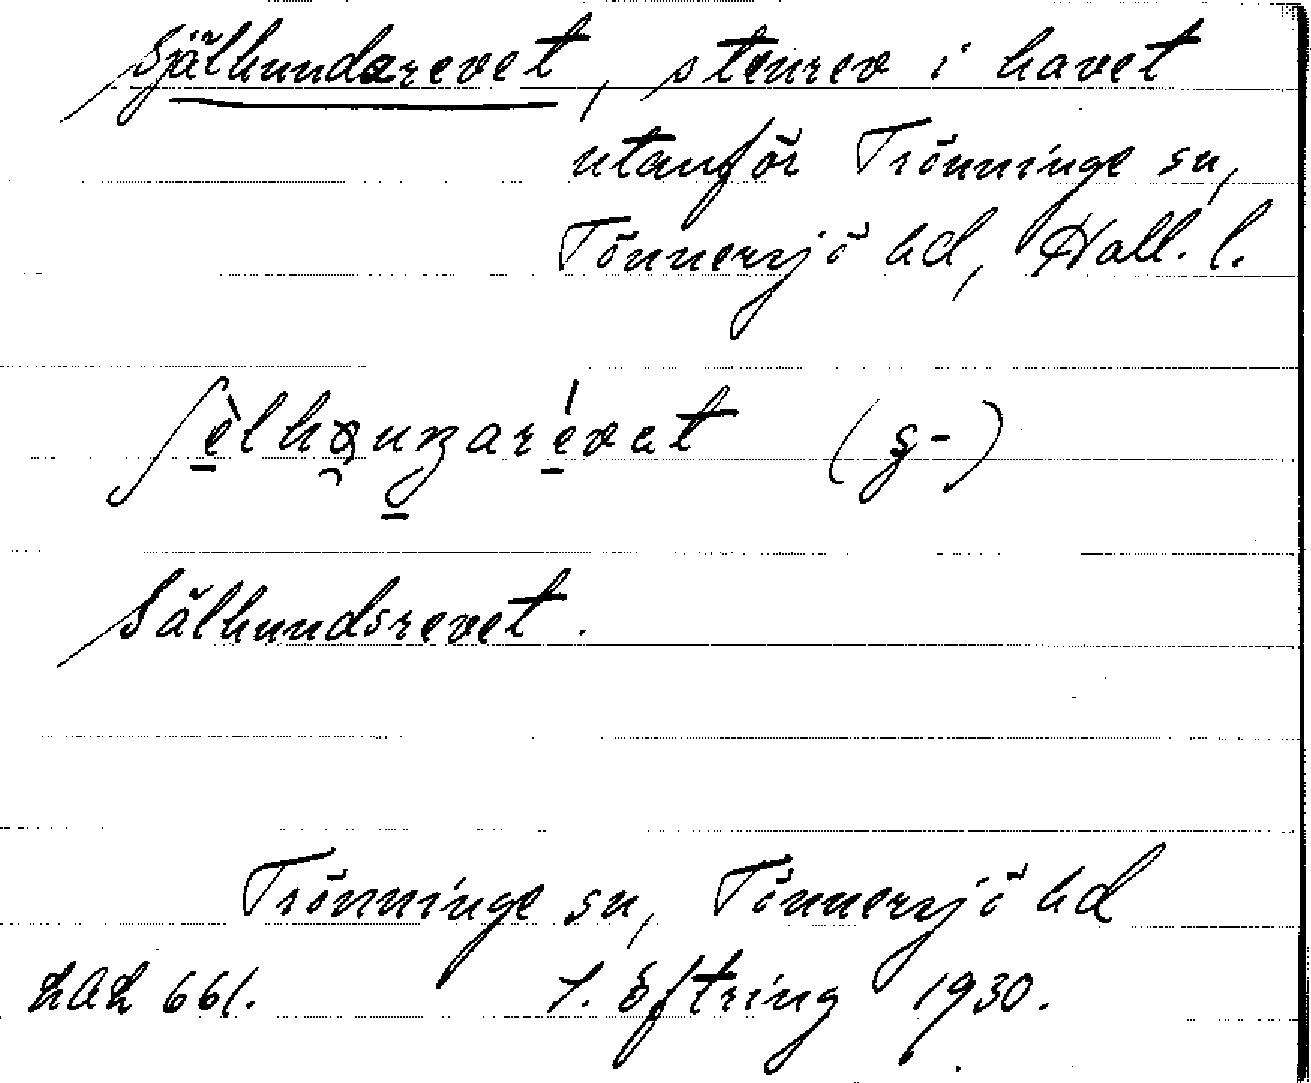 Själhundarevet, stenrev i havet
utanför Trönninge sn,
Tönnersjö hd, Hall. l.
(g-)
Sälhundsrevet.
Trönninge sn, Tönnersjö hd
LAL 661. Öftring 1930.